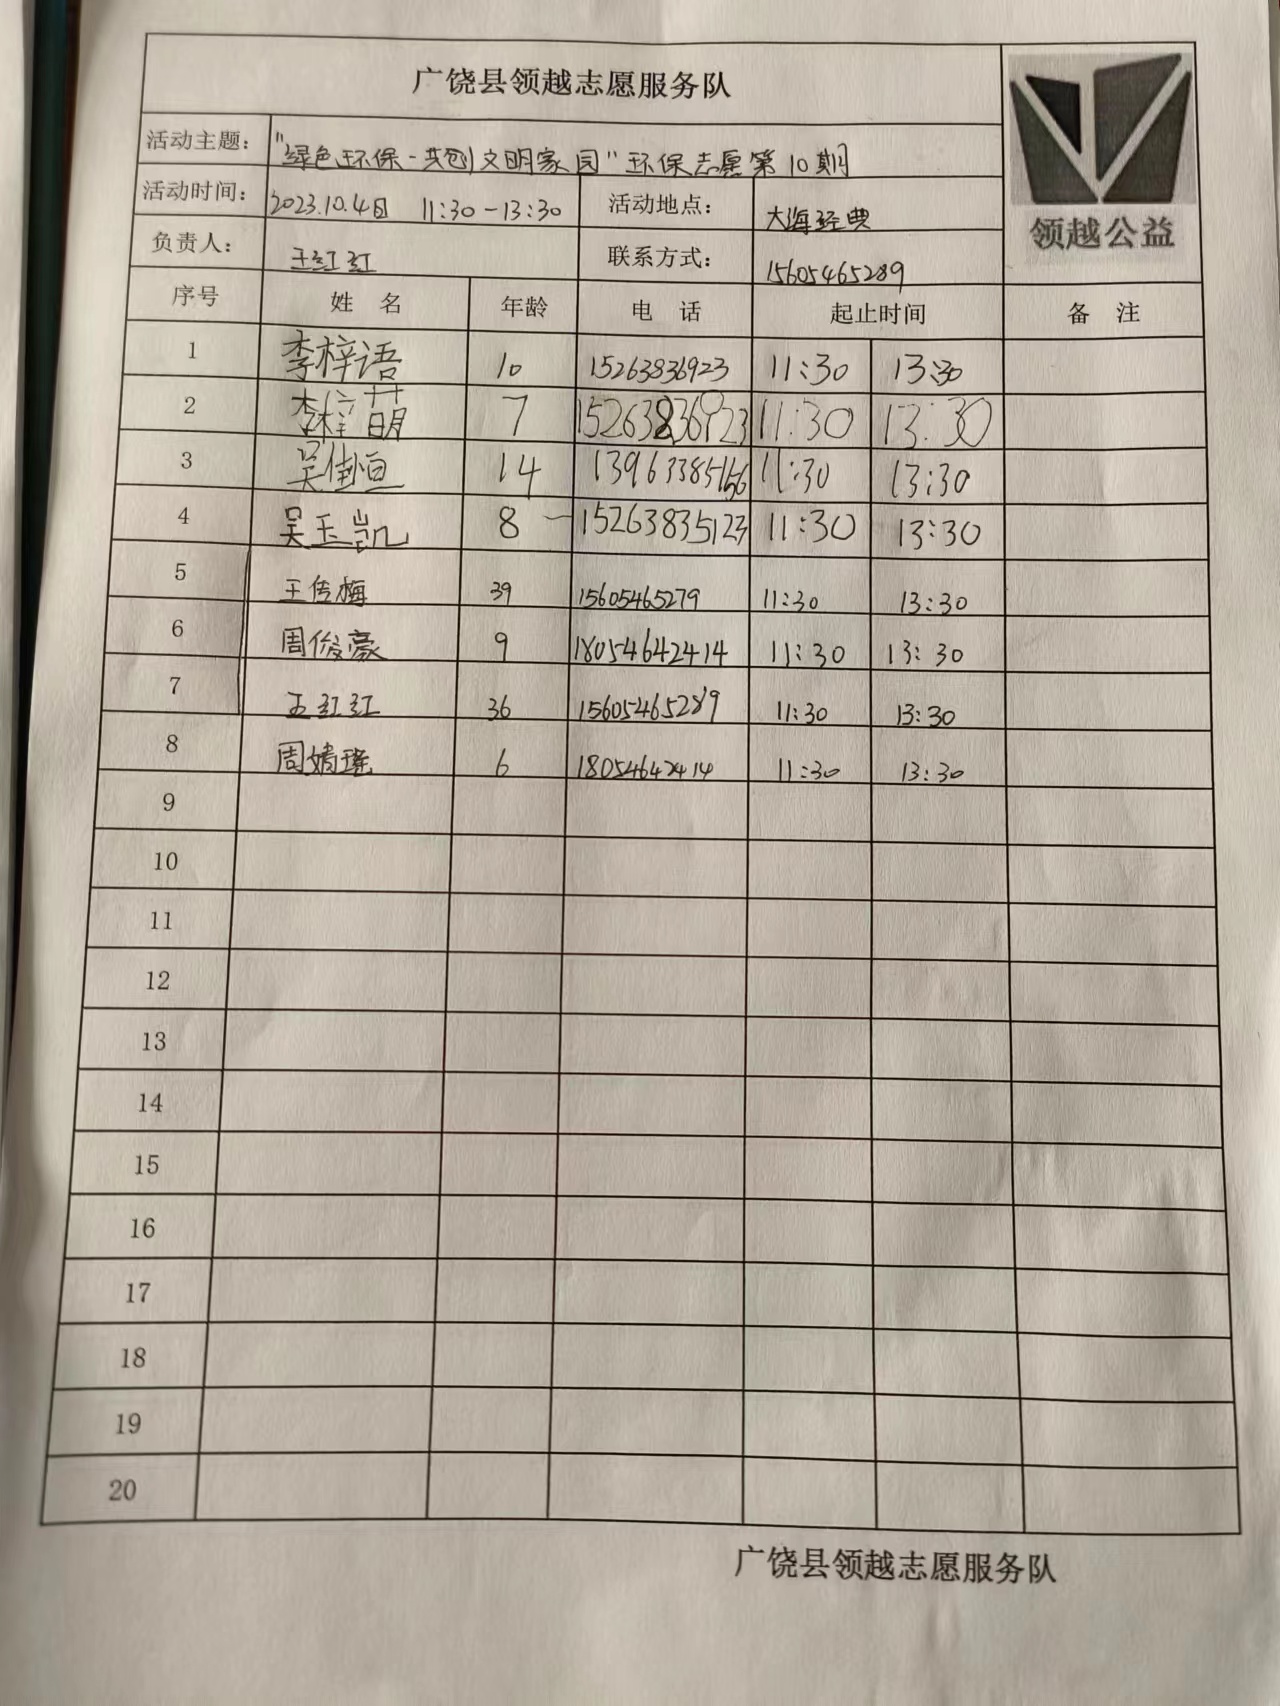 广饶县领越志愿服务队
活动主题： "绿色环保-共创文明家园"环保志愿第10期
活动时间： 2023.10.4日 11:30-13:30 活动地点： 大海经典
负责人： 王红红 联系方式： 15605465289
领越公益
序号 姓 名 年龄 电 话 起止时间 备 注
1 李梓语 10 15263836923 11:30 13:30
2 李梓萌 7 15263836923 11:30 13:30
3 吴佳恒 14 11:30 13:30
4 吴玉凯 8 15263835123 11:30 13:30
5 王传梅 39 15605465279 11:30 13:30
6 周俊豪 9 18054642414 11:30 13:30
7 王红红 36 15605465289 11:30 13:30
8 周婧瑶 6 18054642414 11:30 13:30
9
10
11
12
13
14
15
16
17
18
19
20
广饶县领越志愿服务队